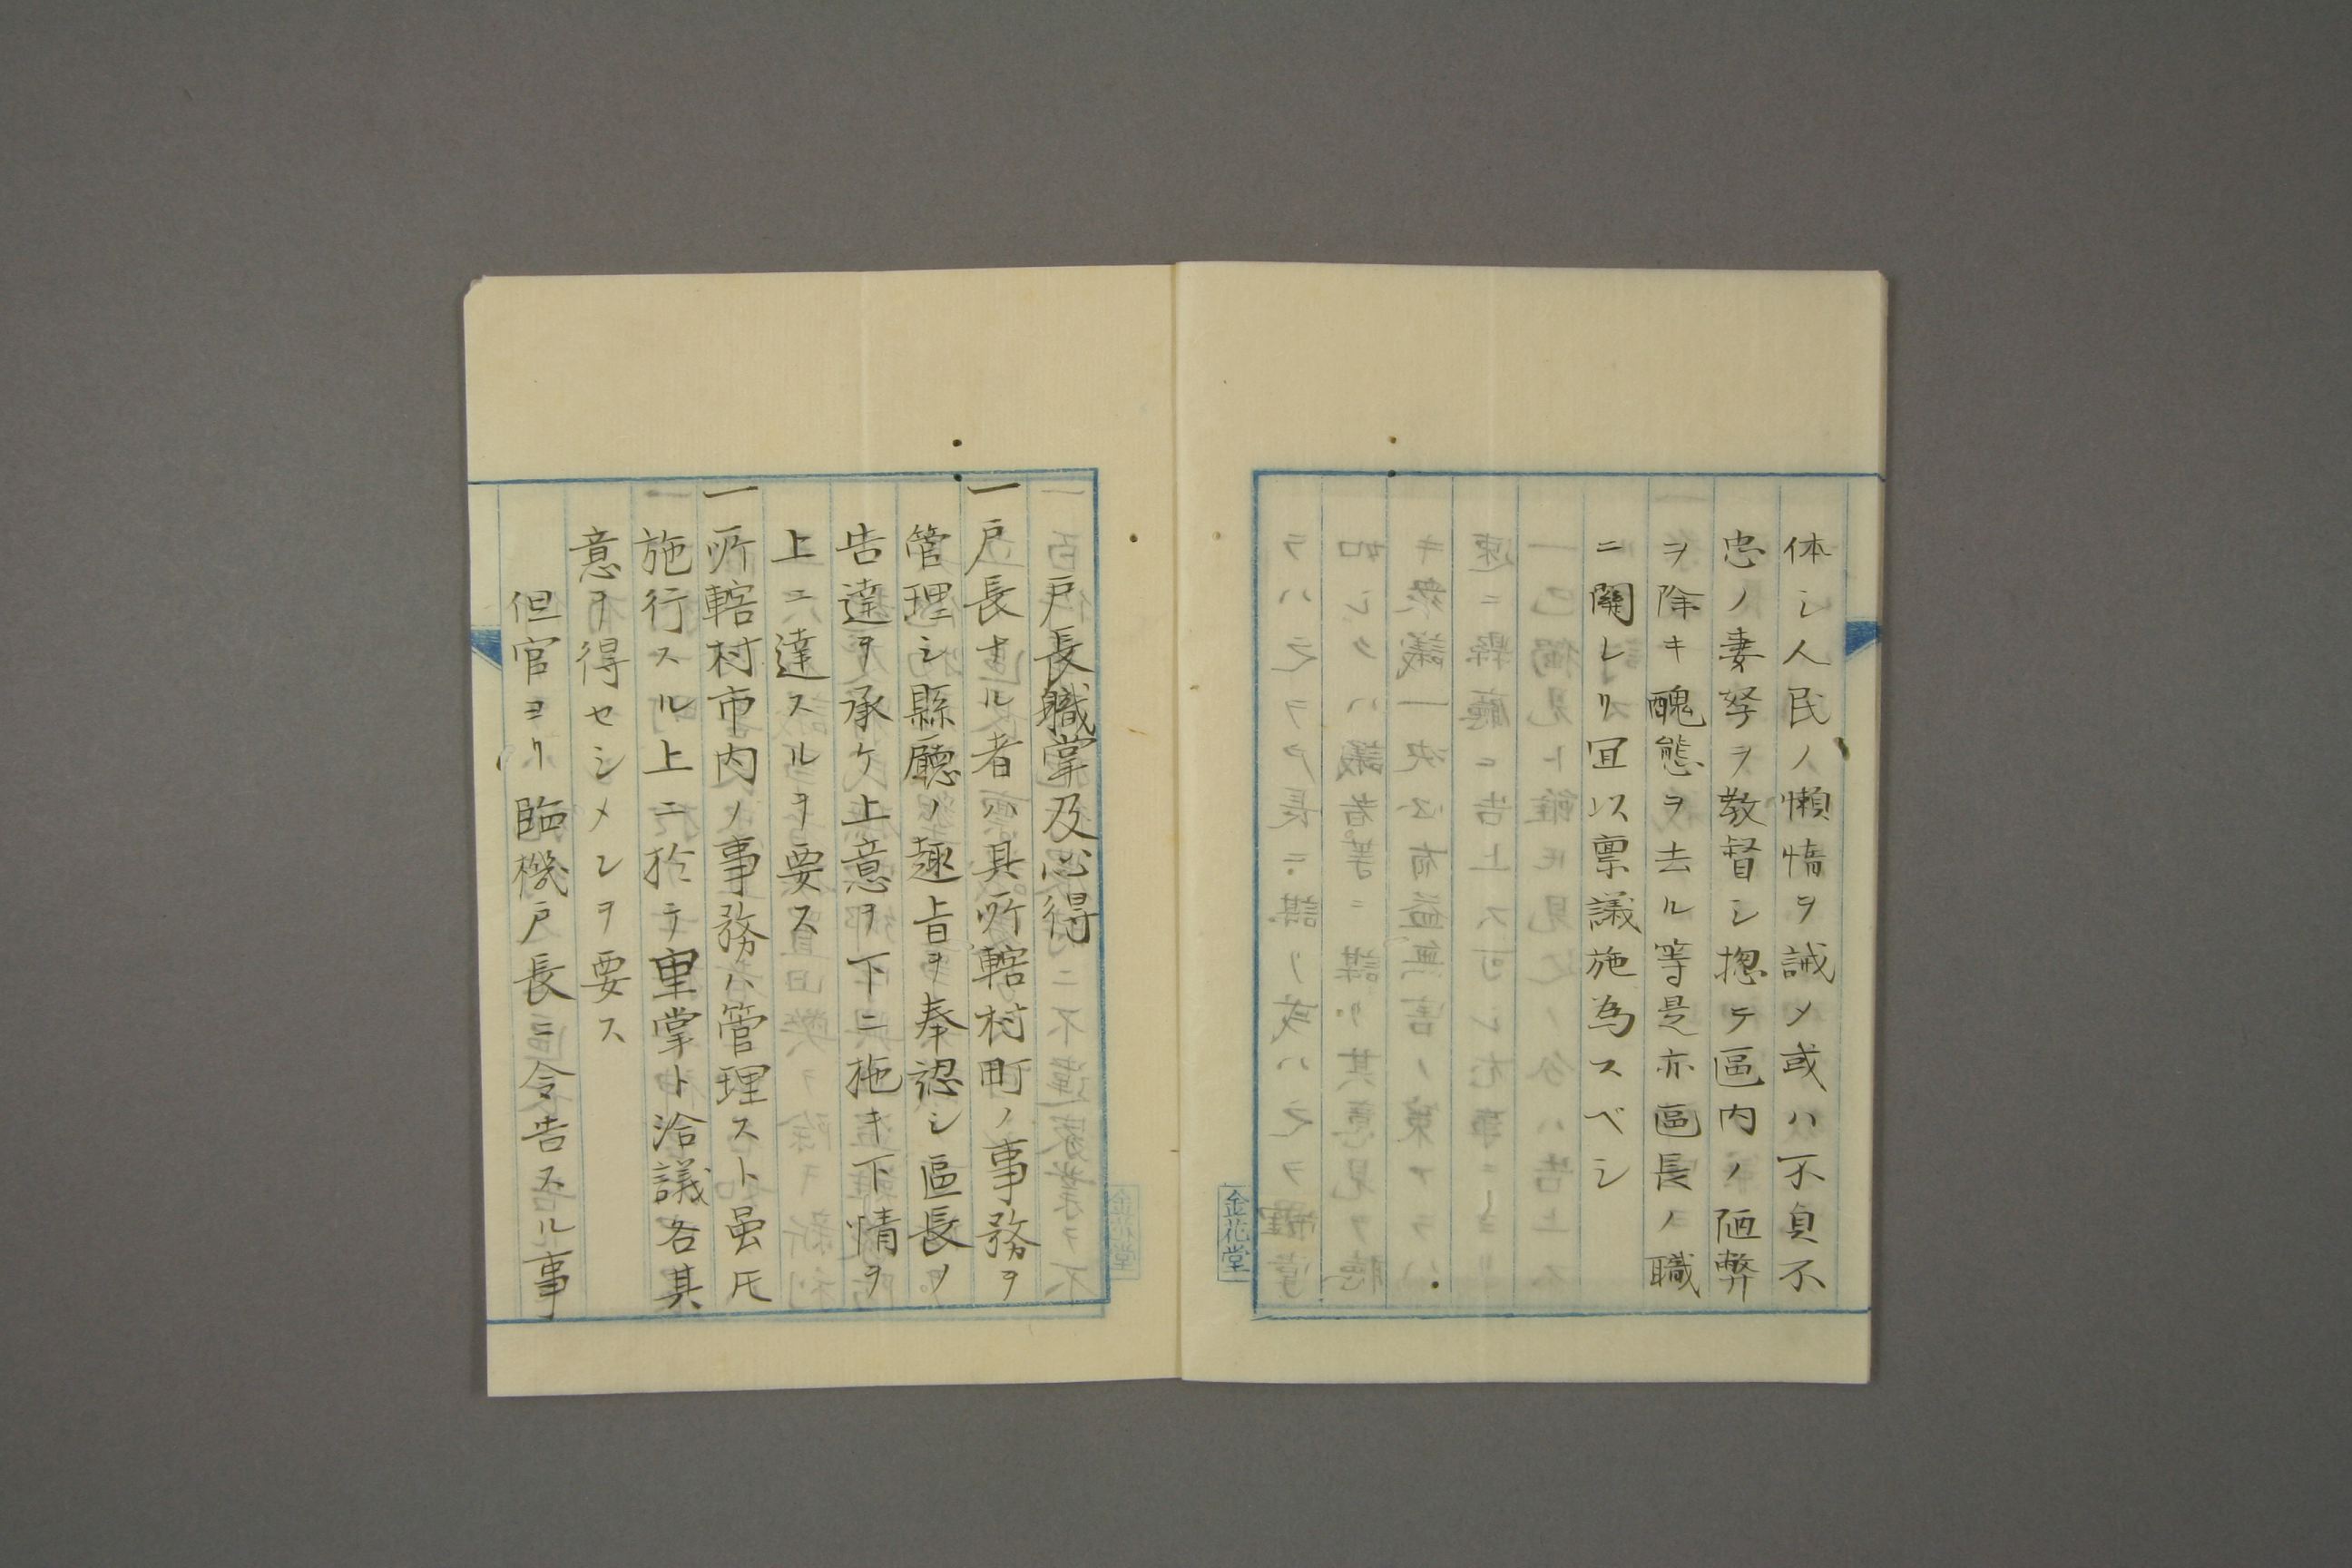 体シ人民ノ懶惰ヲ誡メ或ハ不貞不
忠ノ妻孥ヲ教督シ摠テ區内ノ陋弊
ヲ除キ醜態ヲ去ル等是亦區長ノ職
ニ関レリ冝以禀議施為スベシ
金花堂
戸長職掌及心得
一戸長ナル者ハ其所轄村町ノ事務ヲ
管理シ縣廳ノ趣旨ヲ奉認シ區長ノ
告達ヲ承ケ上意ヲ下ニ施キ下情ヲ
上ニ達スルヲ要ス
一所轄村市内ノ事務ハ管理スト虽𪜈
施行スル上ニ於テ里掌ト洽議各其
意ヲ得セシメンヲ要ス
但官ヨリ臨機戸長ニ令告スル事